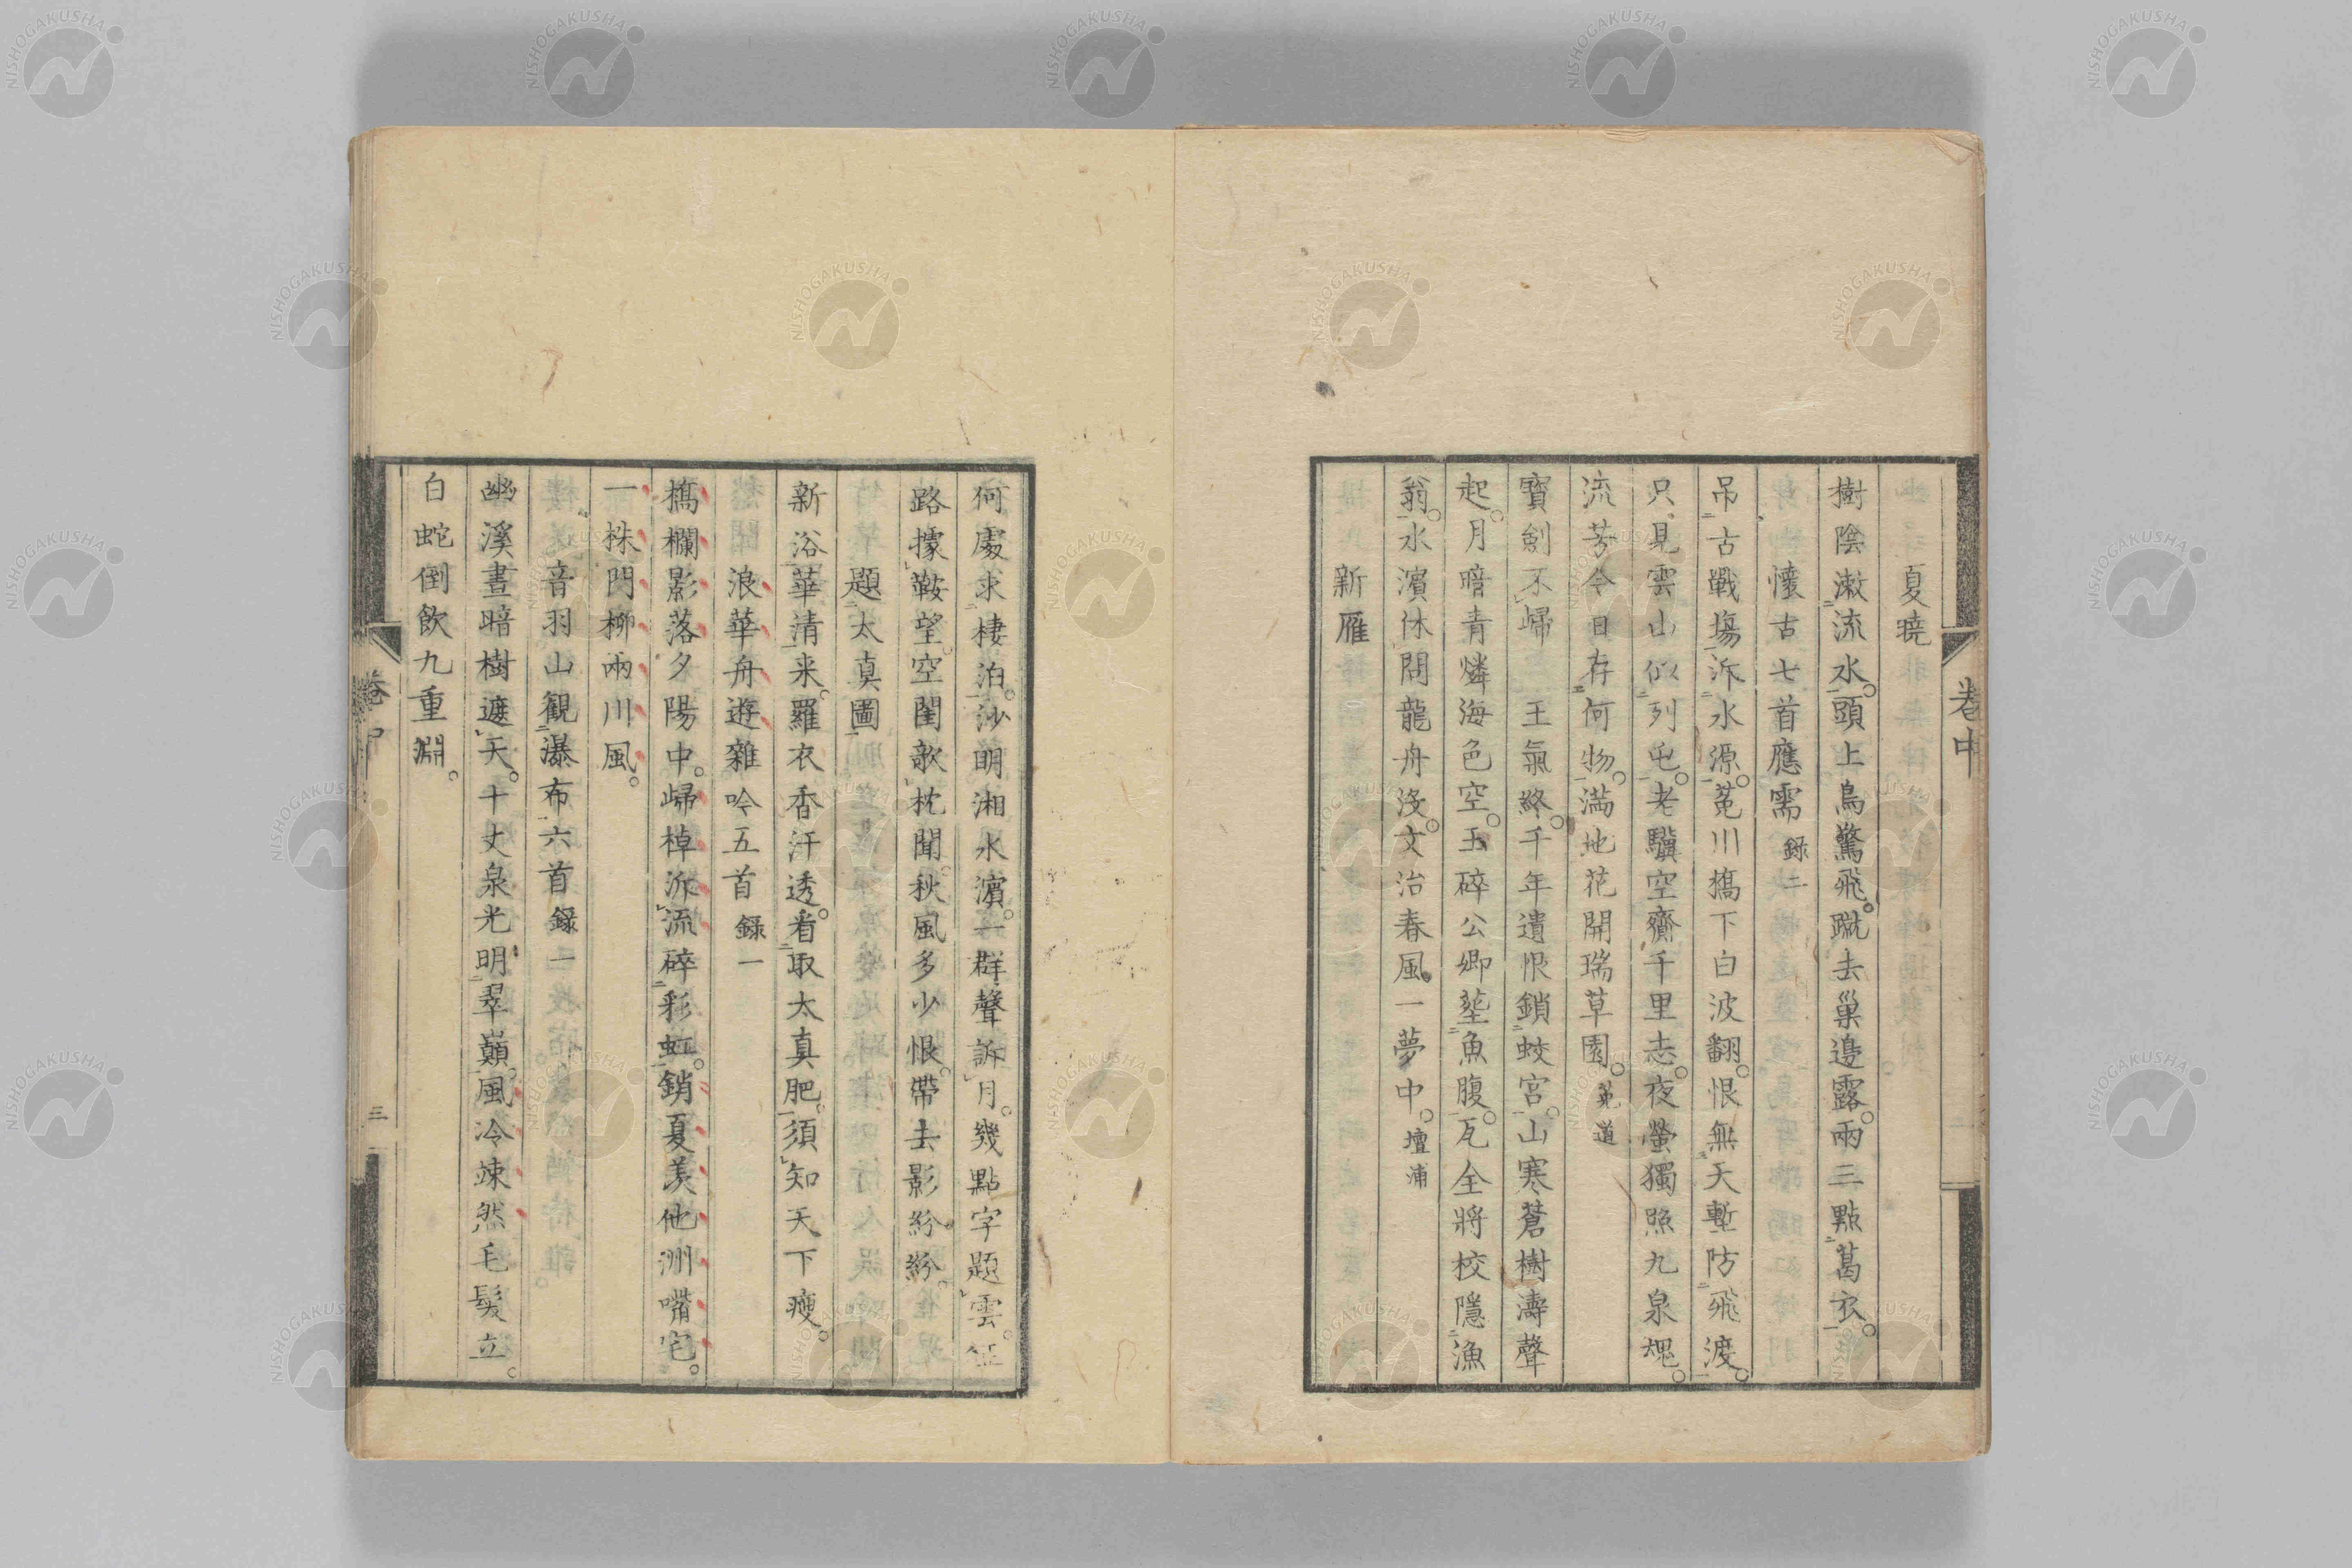 卷中
夏曉
樹陰漱流水頭上鳥驚飛蹴去巢邊露兩三點葛衣
懷古七首應需 錄二
吊古戰場泝水源菟川撟下白波翻恨無天塹防飛渡
只見雲山似列屯老驥空齎千里志夜螢獨照九泉魂
流芳今日存何物滿地花開瑞草園 菟道
寶劍不歸王氣終千年遺恨鎖蛟宮山寒蒼樹濤聲
起月暗青燐海色空玉碎公卿塟魚腹瓦全將校隱漁
翁水濱休問龍舟沒文治春風一夢中 壇浦
新雁
何處求棲泊沙明湘水濱一群聲訴月幾點字題雲征
路據鞍望空閨欹枕聞秋風多少恨帶去影紛紛
題太真圖
新浴華清来羅衣香汗透看取太真肥須知天下瘦
浪華舟遊雜吟五首 錄一
撟欄影落夕陽中歸棹泝流碎彩虹銷夏羨他洲嘴宅
一株門柳兩川風
音羽山觀瀑布六首 錄一
幽溪晝暗樹遮天十丈泉光明翠巓風冷竦然毛髮立
白蛇倒飲九重淵
卷中
三
NISHOGAKUSHA